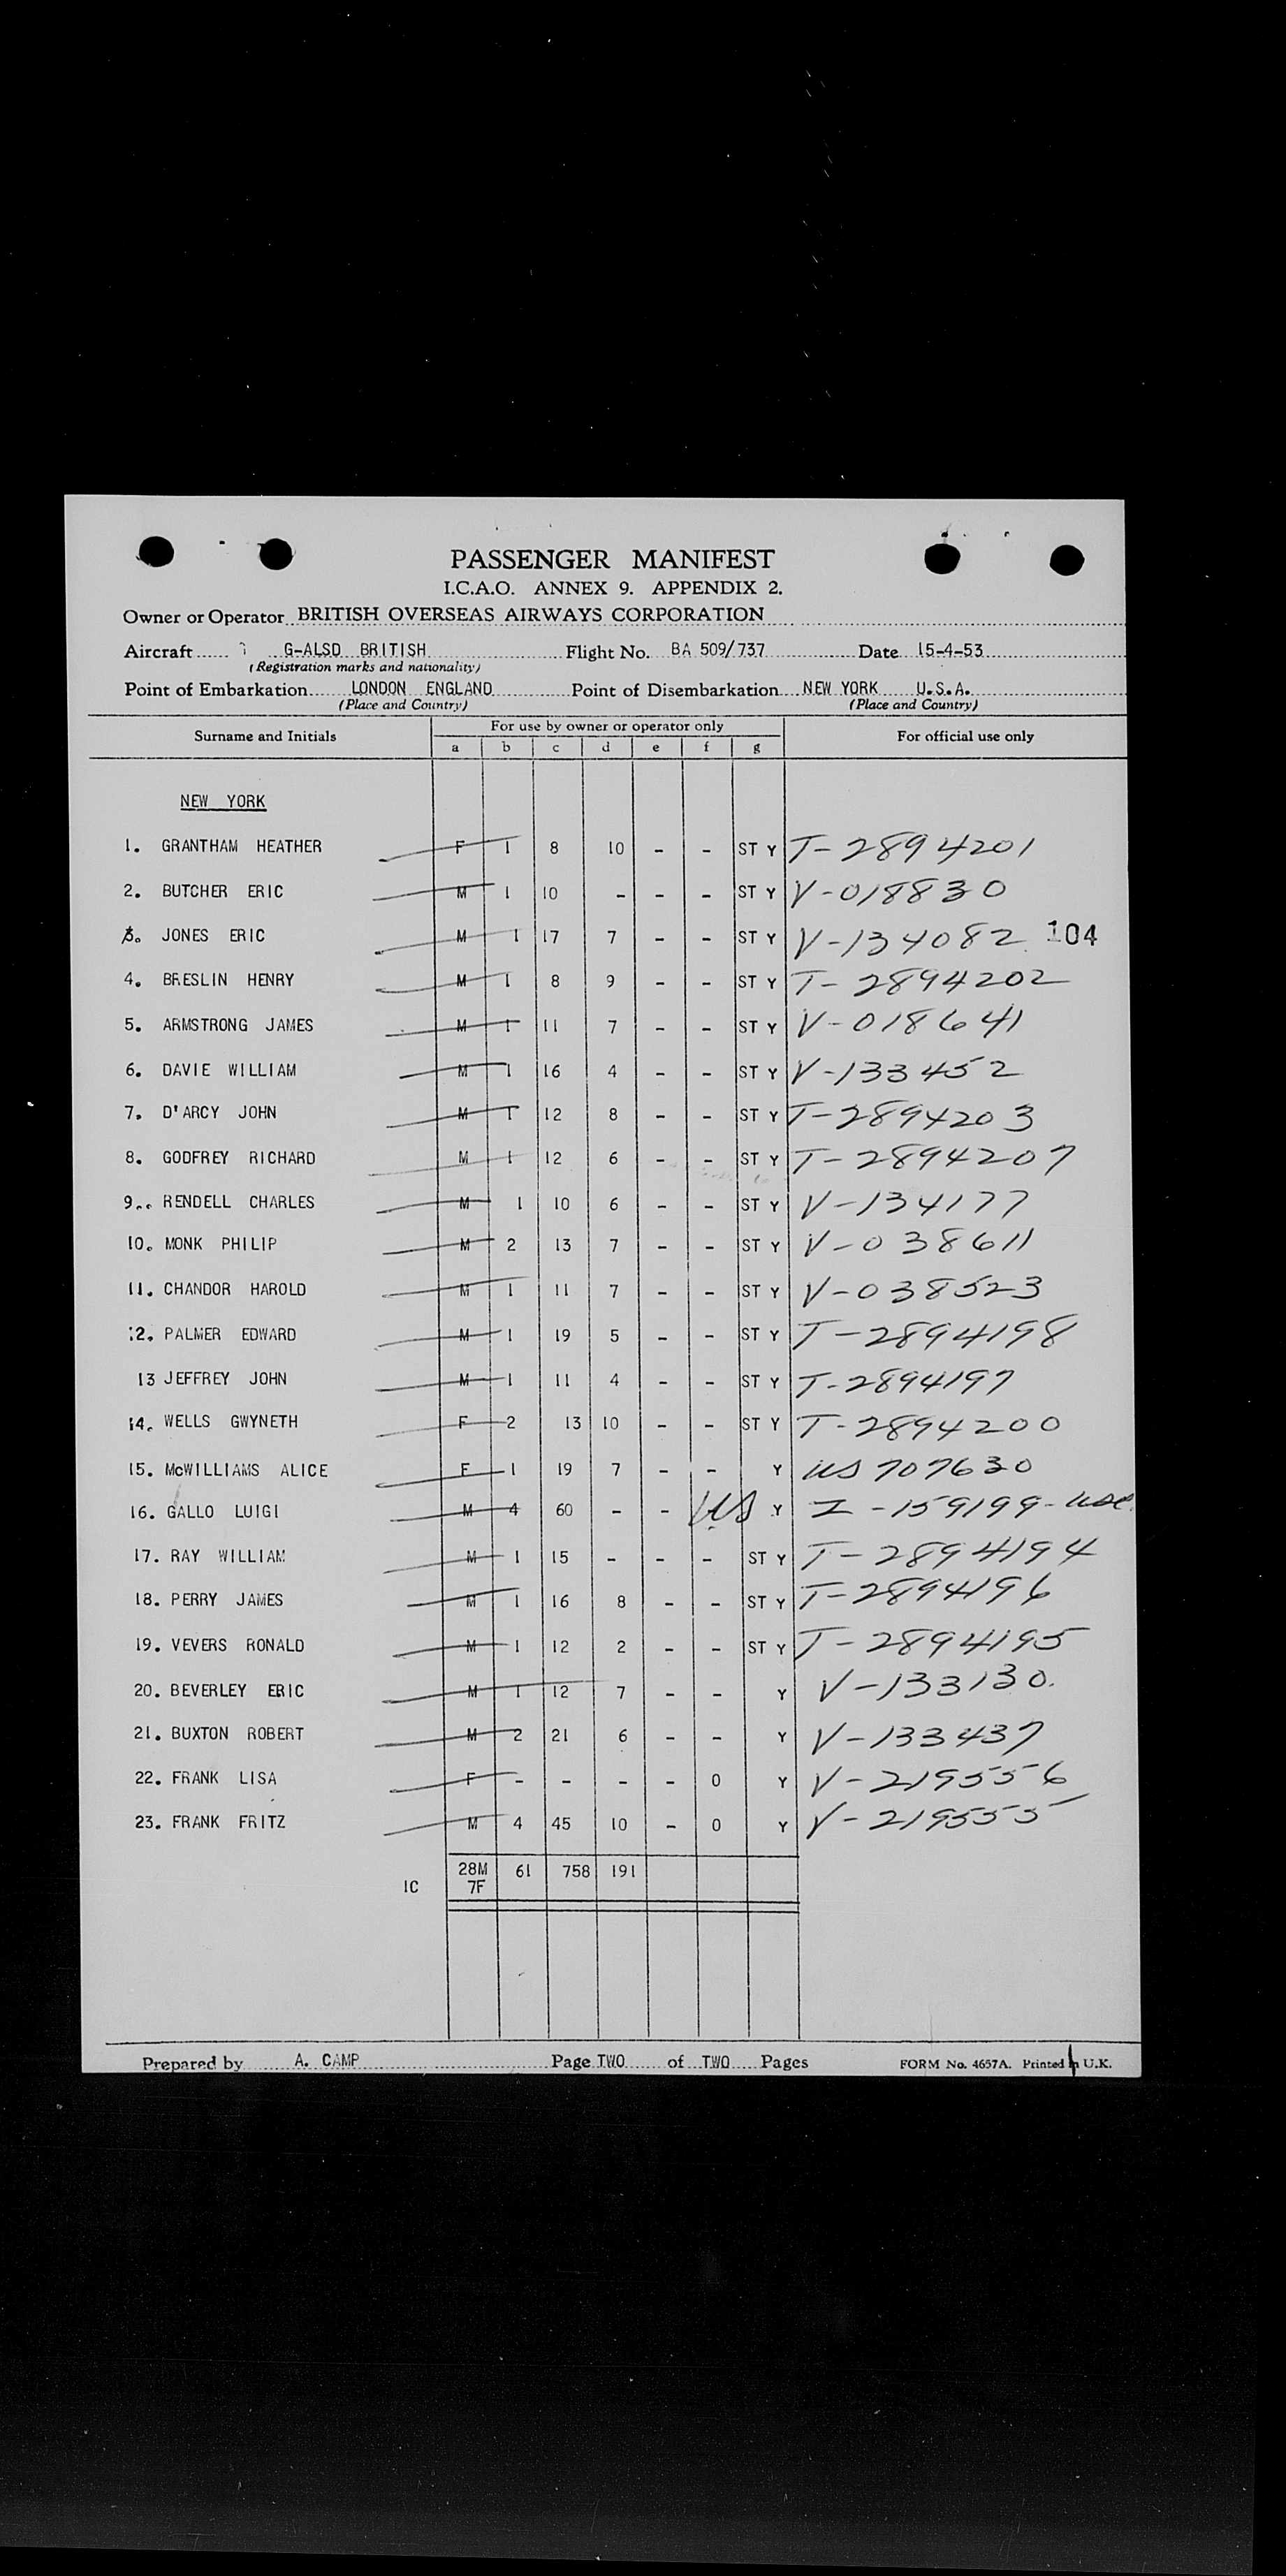 PASSENGER MANIFEST
I.C.A.O. ANNEX 9. APPENDIX 2.
Owner or Operator BRITISH OVERSEAS AIRWAYS CORPORATION
Aircraft G-ALSD BRITISH Flight No. BA 509/737 Date 15-4-53
(Registration marks and nationality)
Point of Embarkation LONDON ENGLAND Point of Disembarkation NEW YORK U.S.A.
(Place and Country) (Place and Country)
Surname and Initials For use by owner or operator only For official use only
a b c d e f g
NEW YORK
1. GRANTHAM HEATHER F 1 8 10 - - ST Y T-2894201
2. BUTCHER ERIC M 1 10 - - - ST Y V-018830
3. JONES ERIC M 1 17 7 - - ST Y V-134082 104
4. BRESLIN HENRY M 1 8 9 - - ST Y T-2894202
5. ARMSTRONG JAMES M 1 11 7 - - ST Y V-018641
6. DAVIE WILLIAM M 1 16 4 - - ST Y V-133452
7. D'ARCY JOHN M 1 12 8 - - ST Y T-2894203
8. GODFREY RICHARD M 1 12 6 - - ST Y T-2894207
9.. RENDELL CHARLES M 1 10 6 - - ST Y V-134177
10. MONK PHILIP M 2 13 7 - - ST Y V-038611
11. CHANDOR HAROLD M 1 11 7 - - ST Y V-038523
12. PALMER EDWARD M 1 19 5 - - ST Y T-2894198
13 JEFFREY JOHN M 1 11 4 - - ST Y T-2894197
14. WELLS GWYNETH F 2 13 10 - - ST Y T-2894200
15. McWILLIAMS ALICE F 1 19 7 - - Y US 707630
16. GALLO LUIGI M 4 60 - - US Y I-159199-
17. RAY WILLIAM M 1 15 - - - ST Y T-2894194
18. PERRY JAMES M 1 16 8 - - ST Y T-2894196
19. VEVERS RONALD M 1 12 2 - - ST Y T-2894195
20. BEVERLEY ERIC M 1 12 7 - - Y V-133130.
21. BUXTON ROBERT M 2 21 6 - - Y V-133437
22. FRANK LISA F - - - - 0 Y V-219556
23. FRANK FRITZ M 4 45 10 - 0 Y V-219555
28M 61 758 191
1C 7F
Prepared by A. CAMP Page TWO of TWO Pages FORM No. 4657A. Printed in U.K.